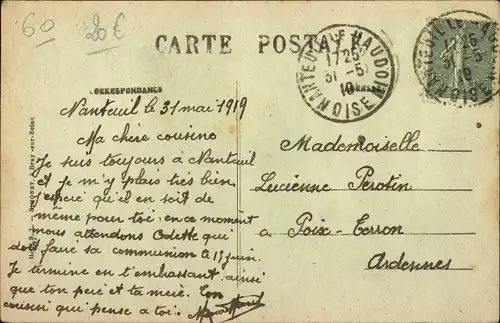 60
20€
CARTE POSTALE
CORRESPONDANCE
NANTEUIL-LE-HAUDOIN
17 25
31 -5
19
OISE
Nanteuil le 31 mai 1919
Ma chère cousine
Je suis toujours à Nanteuil
et je m'y plais très bien
j'espère qu'il en soit de
même pour toi, en ce moment
nous attendons Odette qui
doit faire sa communion le 1er juin.
Je termine en t'embrassant ainsi
que ton père et ta mère. Ton
cousin qui pense a toi.
Mademoiselle
Lucienne Perotin
à Poix-Terron
Ardennes